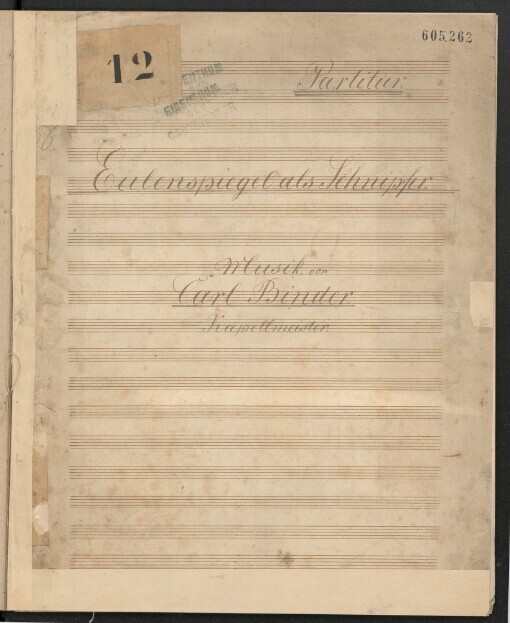 605.262
12
Partitur.
EIGENTHUM
6.
Eulenspiegel als Schnipfer.
Musik von
Carl Binder
Kapellmeister.